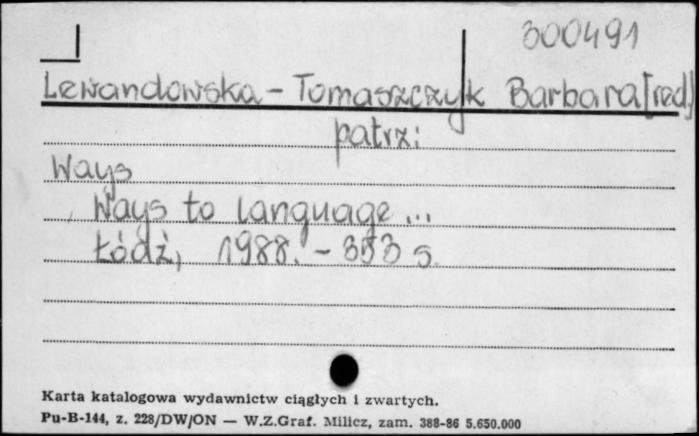 300491
Lewandowska-Tomaszczyk Barbara [red]
patrz:
Ways
Ways to language...
Łódź, 1988. - 353 s.
Karta katalogowa wydawnictw ciągłych i zwartych.
Pu-B-144, z. 228/DW/ON — W.Z.Graf. Milicz, zam. 388-86 5.650.000